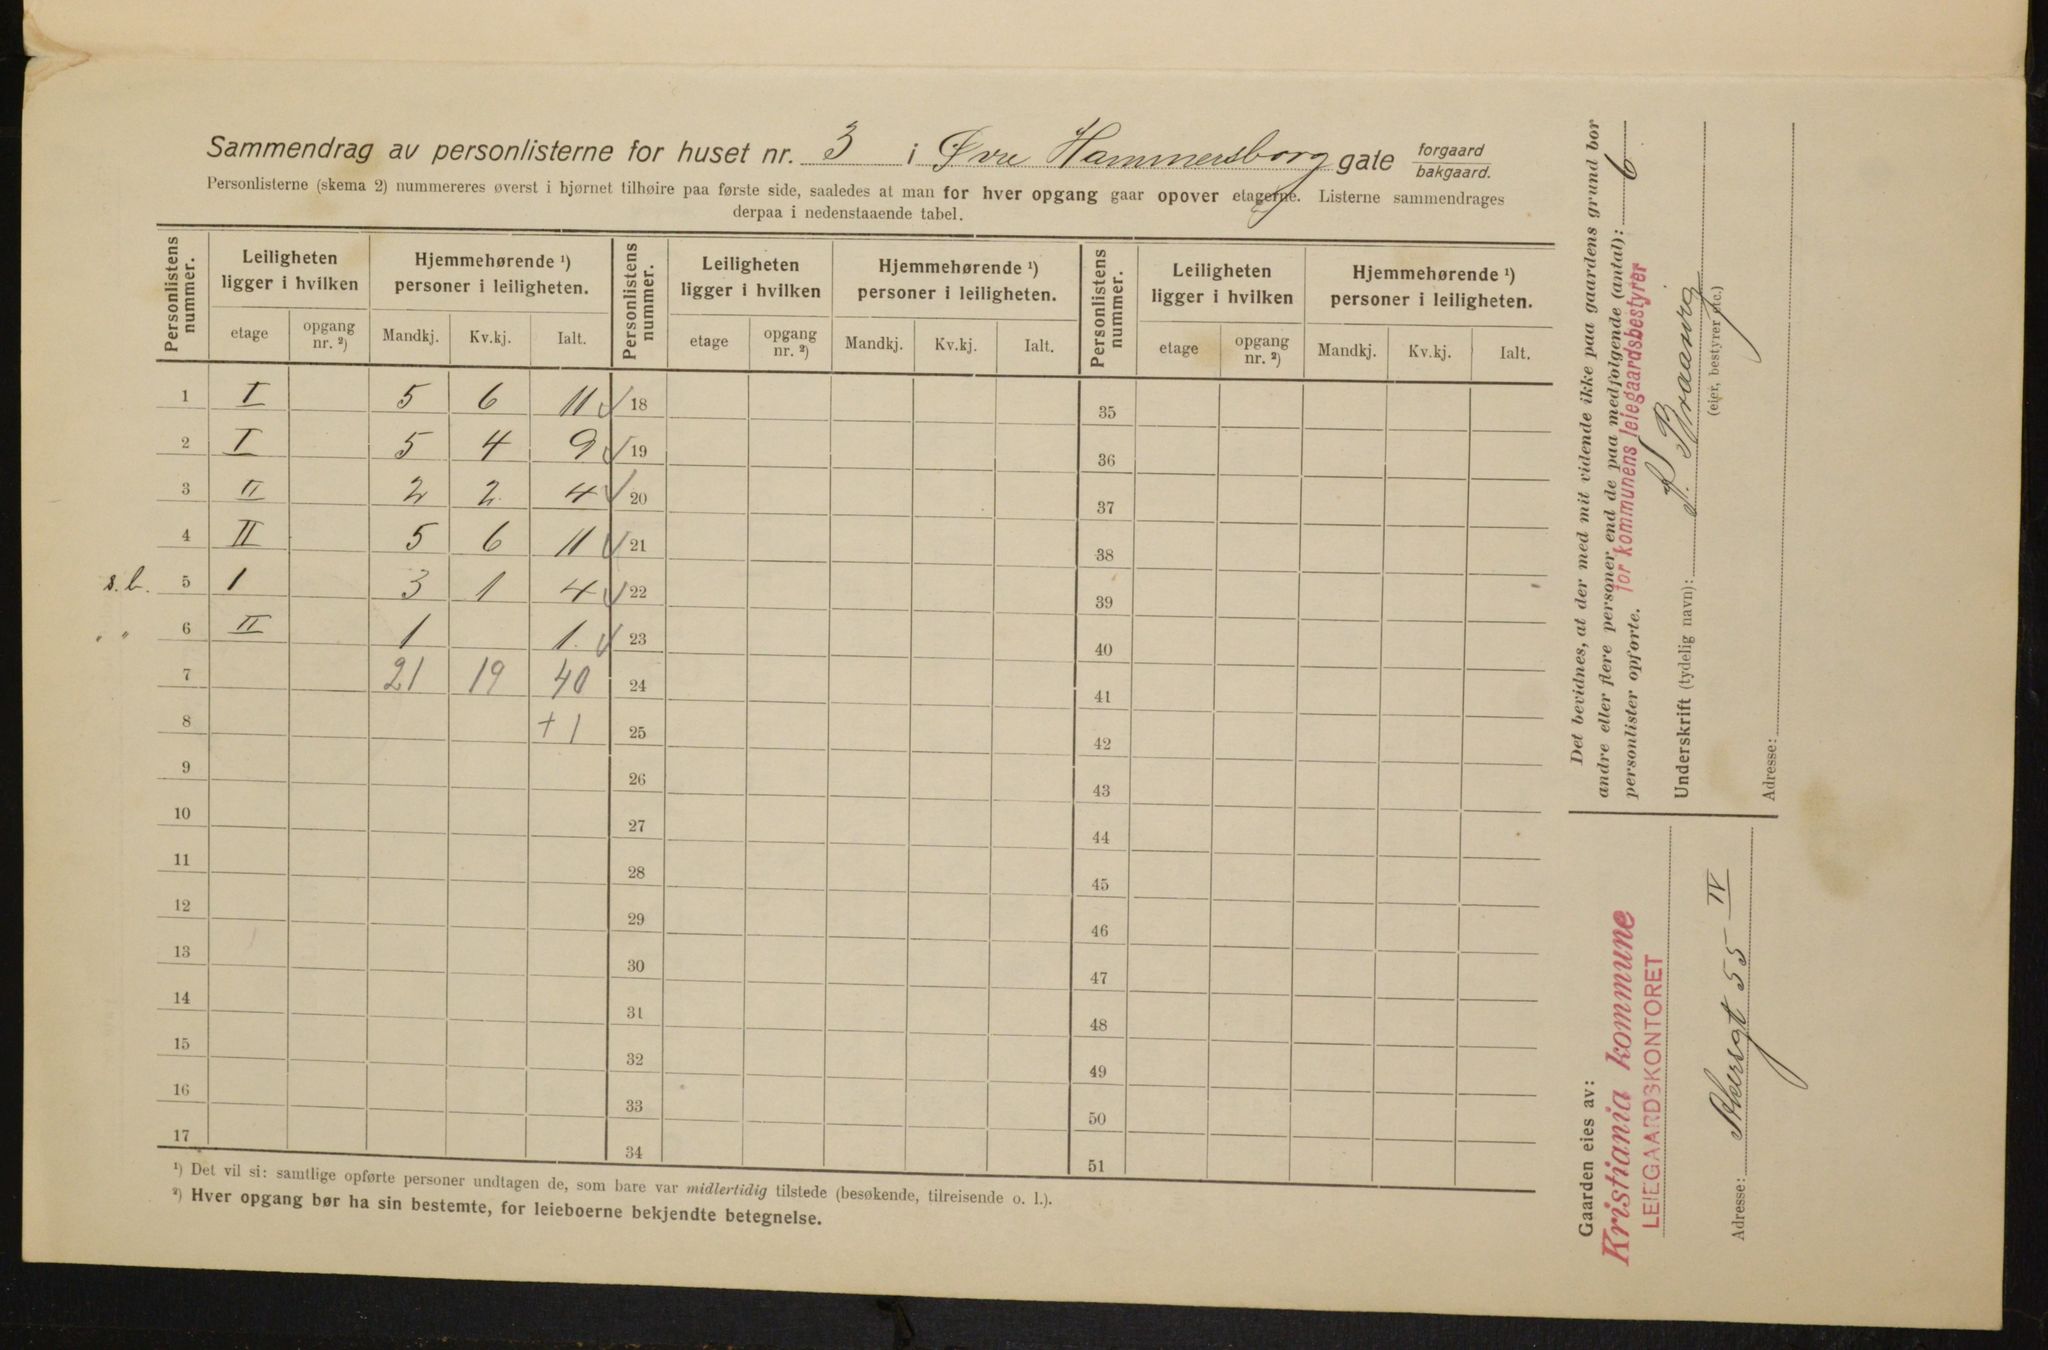 Sammendrag av personlisterne for huset nr. 3 i Øvre Hammersborg gate forgaard bakgaard.
Personlisterne (skema 2) nummereres øverst i hjørnet tilhøire paa første side, saaledes at man for hver opgang gaar opover etagerne. Listerne sammendrages
derpaa i nedenstaaende tabel.
Personlistens nummer. Leiligheten ligger i hvilken Hjemmehørende ¹) personer i leiligheten. Personlistens nummer. Leiligheten ligger i hvilken Hjemmehørende ¹) personer i leiligheten. Personlistens nummer. Leiligheten ligger i hvilken Hjemmehørende ¹) personer i leiligheten.
etage opgang nr. ²) Mandkj. Kv.kj. Ialt. etage opgang nr. ²) Mandkj. Kv.kj. Ialt. etage opgang nr. ²) Mandkj. Kv.kj. Ialt.
1 I 5 6 11 √ 18 35
2 I 5 4 9 √ 19 36
3 II 2 2 4 √ 20 37
4 II 5 6 11 √ 21 38
s. b. 5 1 3 1 4 √ 22 39
" " 6 II 1 1. √ 23 40
7 21 19 40 24 41
8 + 1 25 42
9 26 43
10 27 44
11 28 45
12 29 46
13 30 47
14 31 48
15 32 49
16 33 50
17 34 51
¹) Det vil si: samtlige opførte personer undtagen de, som bare var midlertidig tilstede (besøkende, tilreisende o. l.).
²) Hver opgang bør ha sin bestemte, for leieboerne bekjendte betegnelse.
Det bevidnes, at der med mit vidende ikke paa gaardens grund bor
andre eller flere personer end de paa medfølgende (antal): 6
personlister opførte. for kommunens leiegaardsbestyrer
Underskrift (tydelig navn):
(eier, bestyrer etc.)
Adresse:
Gaarden eies av:
Kristiania kommune
LEIEGAARDSKONTORET
Adresse: Akersgt 55 IV